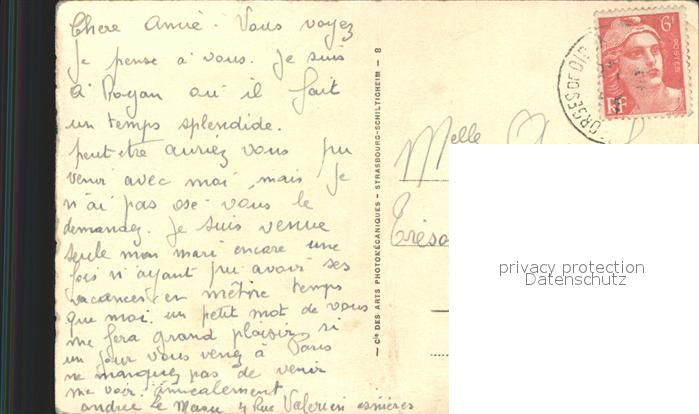 Chere Amie. Vous voyez
je pense a vous. Je suis
a Royan où il fait
un temps splendide.
peut-etre auriez vous pu
venir avec moi, mais je
n'ai pas osé vous le
demandez. Je suis venue
seule mon mari encore une
fois n'ayant pu avoir ses
vacances en même temps
que moi. un petit mot de vous
me fera grand plaisir, si
un jour vous venez à Paris
ne manquez pas de venir
me voir. amicalement
andrée Le 4 Rue Valerien asnières
— Cie DES ARTS PHOTOMÉCANIQUES - STRASBOURG-SCHILTIGHEIM - 8
Melle
Tréso
6F
POSTES
RF
ORGES DE DID
privacy protection
Datenschutz